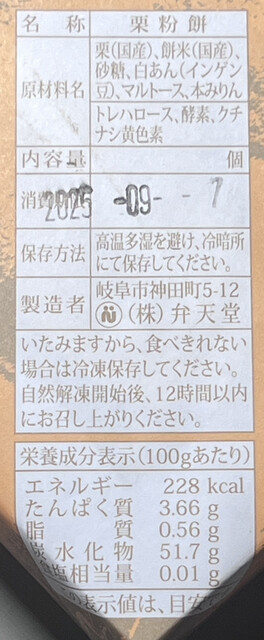 名称 栗粉餅
原材料名 栗(国産)、餅米(国産)、
砂糖、白あん(インゲン
豆)、マルトース、本みりん
トレハロース、酵素、クチ
ナシ黄色素
内容量 個
消費 2025 -09- - 7
保存方法 高温多湿を避け、冷暗所
にて保存してください。
製造者 岐阜市神田町5-12
(株)弁天堂
いたみますから、食べきれない
場合は冷凍保存してください。
自然解凍開始後、12時間以内
にお召し上がりください。
栄養成分表示(100gあたり)
エネルギー 228 kcal
たんぱく質 3.66 g
脂質 0.56 g
炭水化物 51.7 g
食塩相当量 0.01 g
表示値は、目安